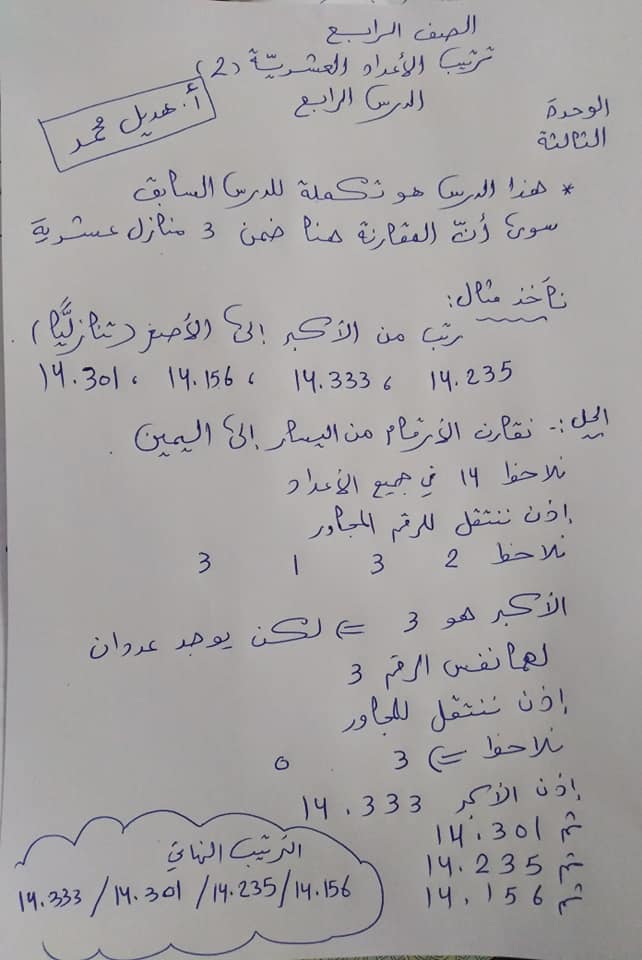 الصف الرابع
ترتيب الأعداد العشريّة (2)
الدرس الرابع
أ. هديل محمد
الوحدة
الثالثة
* هذا الدرس هو تكملة للدرس السابق
سوى أنّ المقارنة هنا ضمن 3 منازل عشرية
نأخذ مثال:
رتب من الأكبر إلى الأصغر (تنازليًّا)
14.235 ، 14.333 ، 14.156 ، 14.301
الحل :- نقارن الأرقام من اليسار إلى اليمين
نلاحظ 14 في جميع الأعداد
إذن ننتقل للرقم المجاور
نلاحظ 2 3 1 3
الأكبر هو 3 => لكن يوجد عددان
لهما نفس الرقم 3
إذن ننتقل للمجاور
نلاحظ => 3 0
إذن الأكبر 14.333
ثم 14.301
ثم 14.235
ثم 14.156
الترتيب النهائي
14.333 / 14.301 / 14.235 / 14.156